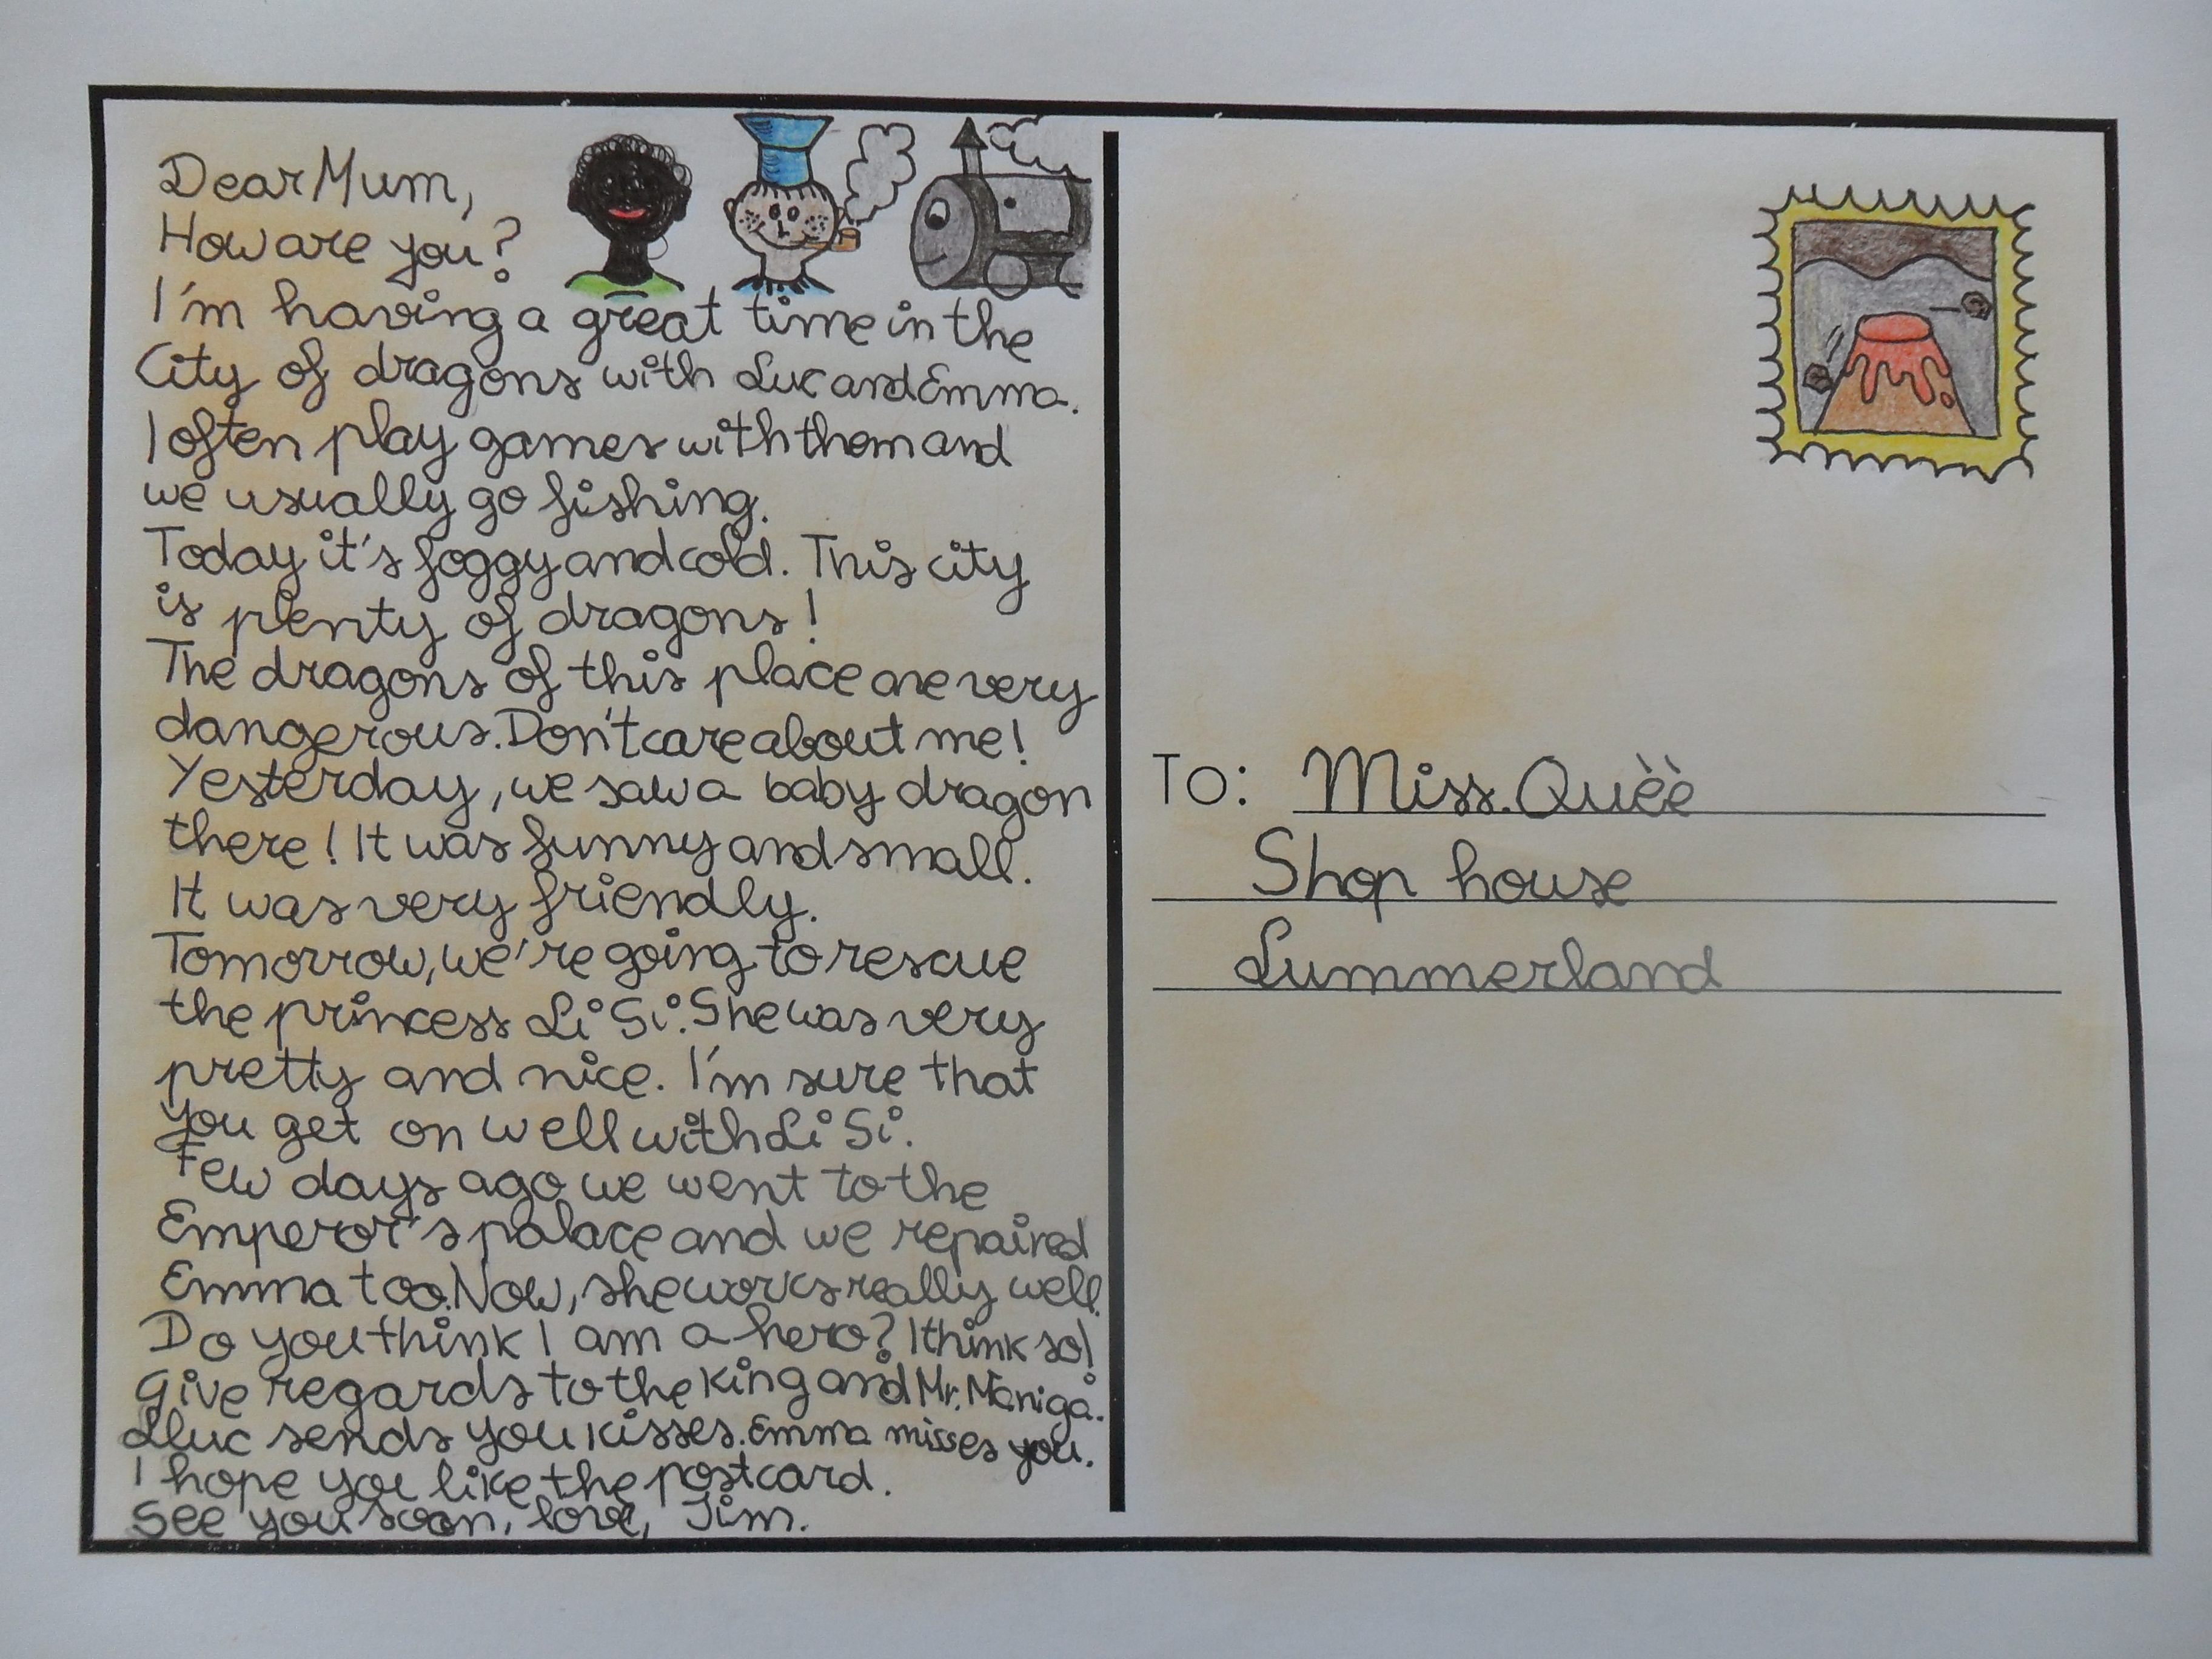 Dear Mum,
How are you?
I'm having a great time in the
City of dragons with Luc and Emma.
I often play games with them and
we usually go fishing.
Today it's foggy and cold. This city
is plenty of dragons!
The dragons of this place are very
dangerous. Don't care about me!
Yesterday, we saw a baby dragon
there! It was funny and small.
It was very friendly.
Tomorrow, we're going to rescue
the princess Li Si. She was very
pretty and nice. I'm sure that
you get on well with Li Si.
Few days ago we went to the
Emperor's palace and we repaired
Emma too. Now, she works really well.
Do you think I am a hero? I think so!
Give regards to the King and Mr. Màniga.
Lluc sends you kisses. Emma misses you.
I hope you like the postcard.
See you soon, love, Jim.
To: Miss. Quèè
Shop house
Lummerland